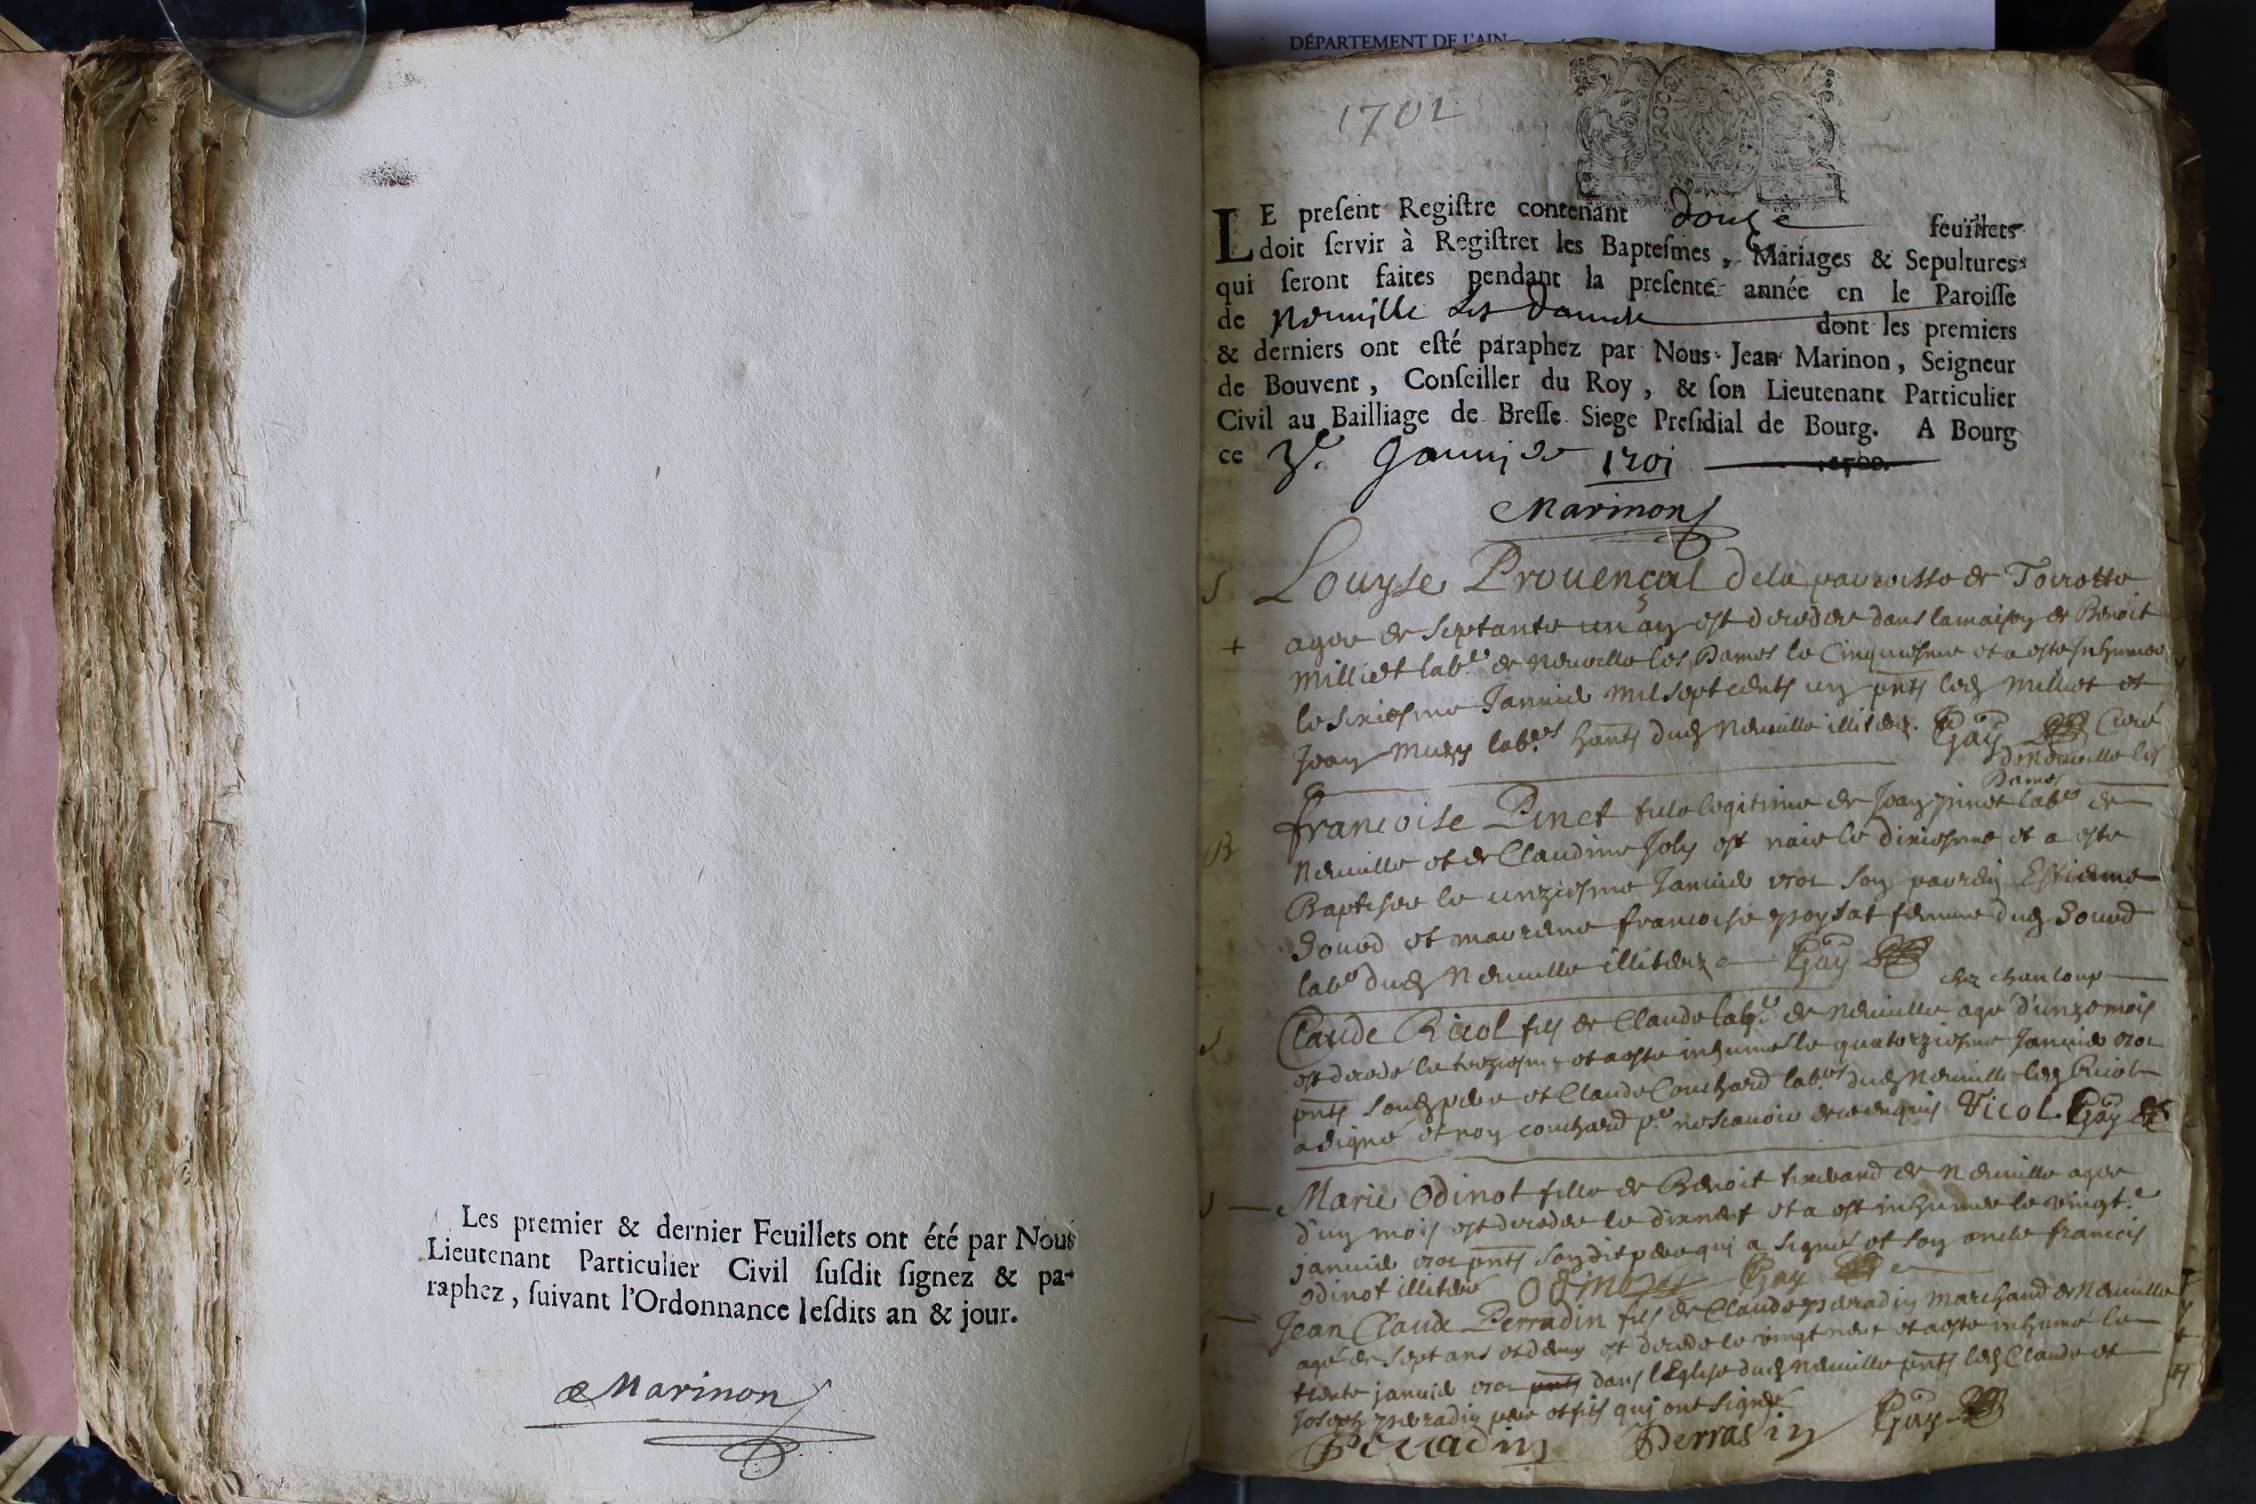 Les premier & dernier Feuillets ont été par Nous
Lieutenant Particulier Civil susdit signez & pa-
raphez, suivant l'Ordonnance lesdits an & jour.
Marinon
DÉPARTEMENT DE L'AIN
1701
LE present Registre contenant douze feuillets
doit servir à Registrer les Baptesmes, Mariages & Sepultures
qui seront faites pendant la presente année en le Paroisse
de Neuville les Dames dont les premiers
& derniers ont esté paraphez par Nous Jean Marinon, Seigneur
de Bouvent, Conseiller du Roy, & son Lieutenant Particulier
Civil au Bailliage de Bresse Siege Presidial de Bourg. A Bourg
ce 3e Janvier 1701
Marinon
S Louyse Prouençal dela parroisse de
+ agee de septante un an est decedee dans la maison de Benoit
Milliet labr de Neuville les Dames le Cinquiesme et a este Inhumee
le sixiesme Januier mil sept cents un pnts led Milliet et
Jean labrs hants dud Neuville illiterez. Gay Curé
de Neuville les
Dames
B francoise Pinet fille legitime de Jean pinet labr de
Neuville et de Claudine Joly est naie le dixiesme et a este
Baptisee le unziesme Januier 1701 son parrein Estienne
et marrene francoise femme dud
labr dud Neuville illiterez Gay
chez chanloup
S Claude Ricol fils de Claude labr de Neuville agé d'unze mois
est decedé le treziesme et a este inhumé le quatorziesme Januier 1701
pnts soud pere et Claude Couchard labrs dud Neuville led Ricol
a signé et non couchard pr ne scauoir de ce enquis Ricol Gay
S Marie Odinot fille de Benoit tisserand de Neuville agee
d'un mois est decedee le dixneuf et a est inhumee le vingte
januier 1701 pnts son dit pere qui a signé et son oncle francois
odinot illiteré Odinot Gay
Jean Claude Perradin fils de Claude perradin marchand de Neuville
agé de sept ans et demy est decede le vingt neuf et a este inhumé le
trente januier 1701 pnts dans l'Eglise dud Neuville pnts led Claude et
Joseph perradin pere et fils qui ont signé
Perradin Perradin Gay